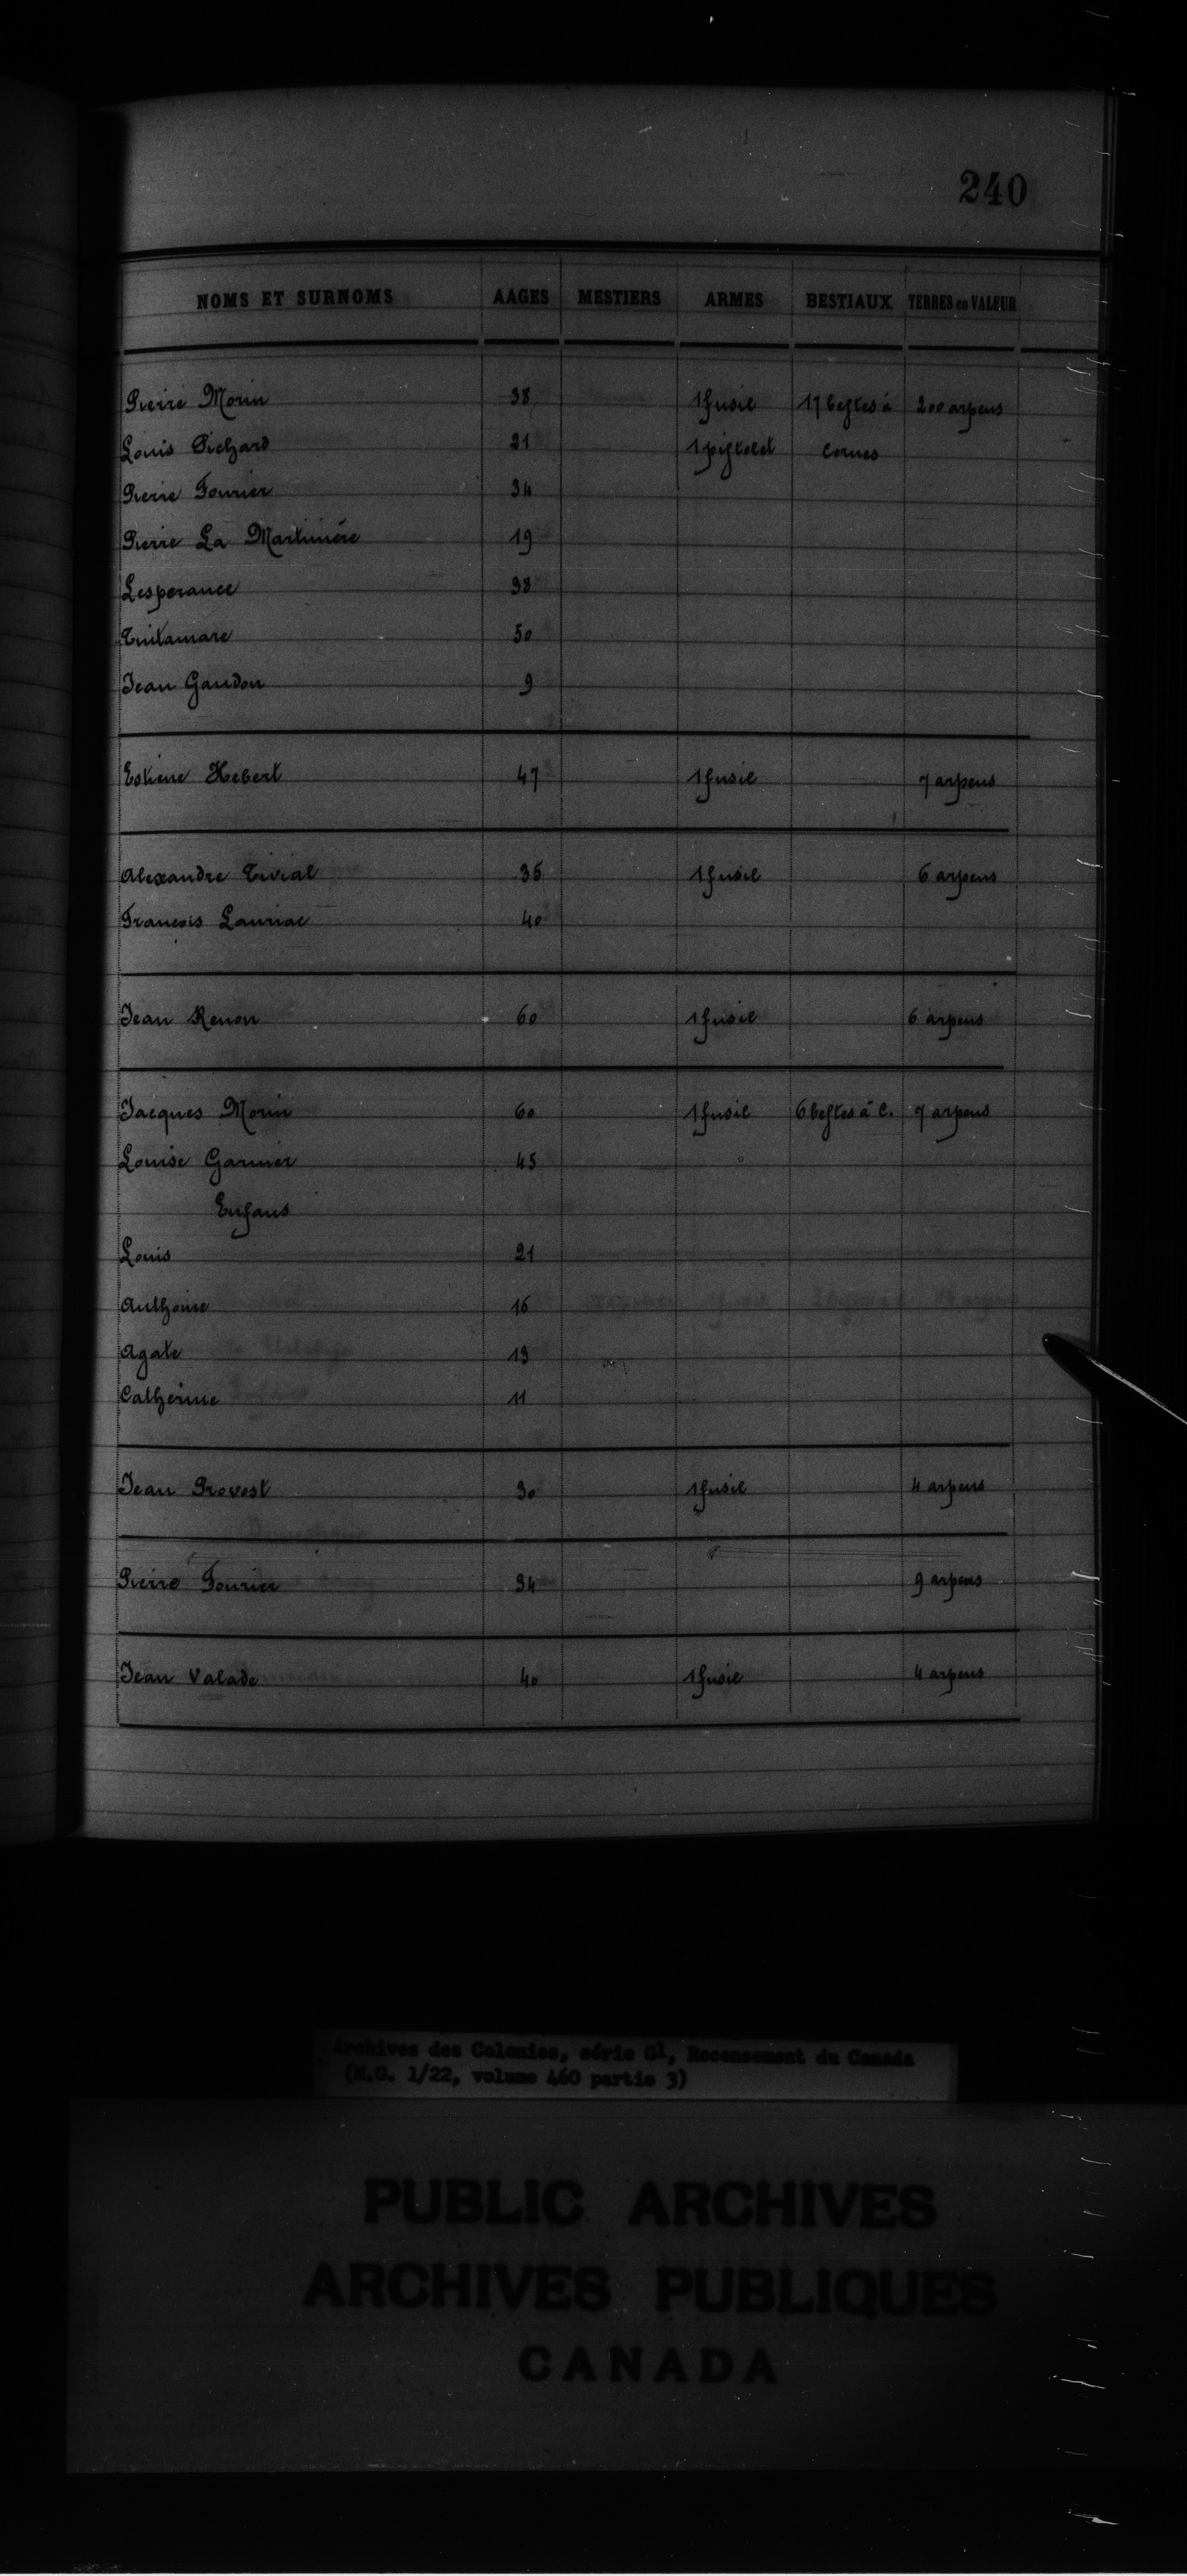 240
NOMS ET SURNOMS AAGES MESTIERS ARMES BESTIAUX TERRES en VALEUR
Pierre Morin 38 1 fusil 17 bestes à 200 arpens
Louis Pichard 21 1 pistolet cornes
Pierre Fournier 34
Pierre La Martinière 19
Lesperance 38
50
Jean Gaudon 9
Estiene Hebert 47 1 fusil 7 arpens
Alexandre Tivial 35 1 fusil 6 arpens
Francois Lauriac 40
Jean Renon 60 1 fusil 6 arpens
Jacques Morin 60 1 fusil 6 bestes à C. 7 arpens
Louise Garnier 45
Enfans
Louis 21
Anthoine 16
Agate 13
Catherine 11
Jean Provost 30 1 fusil 4 arpens
Pierre Fournier 34 9 arpens
Jean Valade 40 1 fusil 4 arpens
Archives des Colonies, série G1, Recensement du Canada
(M.G. 1/22, volume 460 partie 3)
PUBLIC ARCHIVES
ARCHIVES PUBLIQUES
CANADA